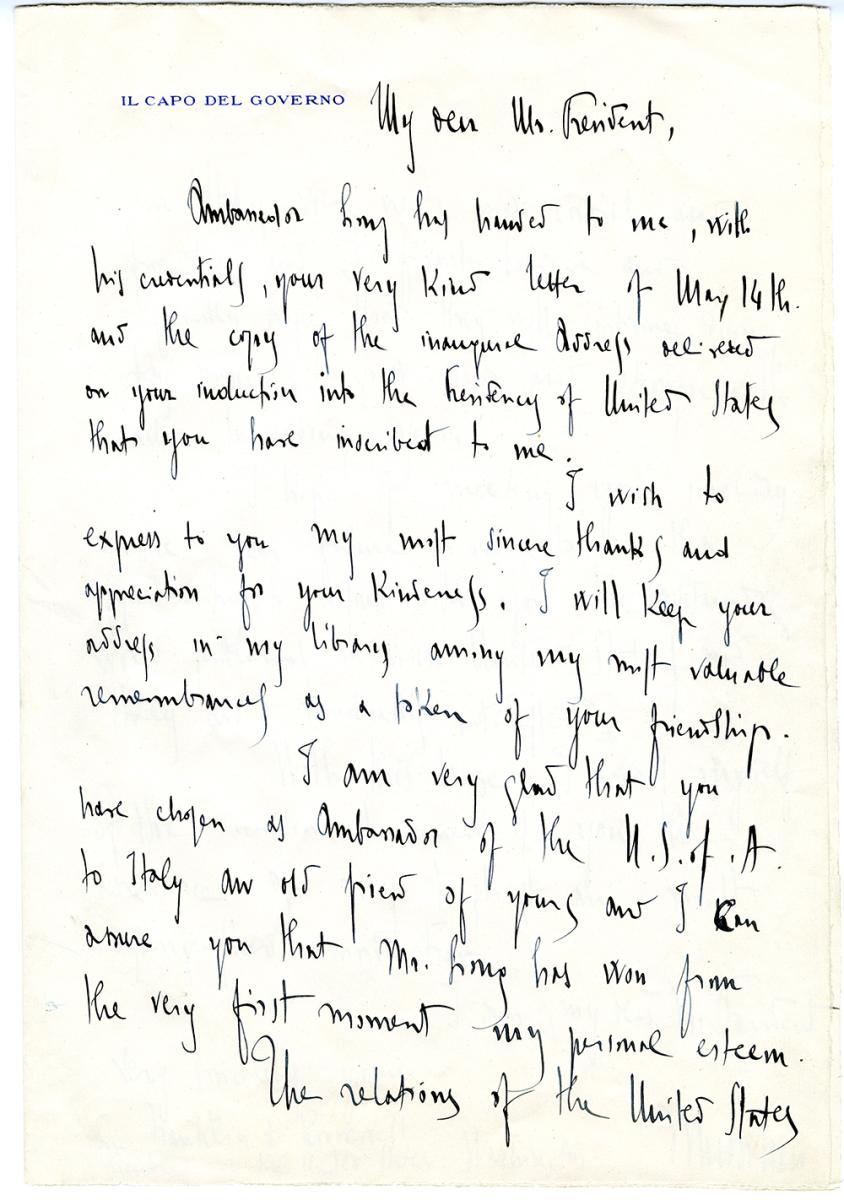 IL CAPO DEL GOVERNO
My dear Mr. President,
Ambassador Long has handed to me, with
his credentials, your very Kind letter of May 14th.
and the copy of the inaugural Address delivered
on your induction into the Presidency of United States
that you have inscribed to me.
I wish to
express to you my most sincere thanks and
appreciation for your Kindeness. I will Keep your
address in my library among my most valuable
remembrances as a token of your friendship.
I am very glad that you
have chosen as Ambassador of the U.S. of .A.
to Italy an old friend of yours and I can
assure you that Mr. Long has won from
the very first moment my personal esteem.
The relations of the United States